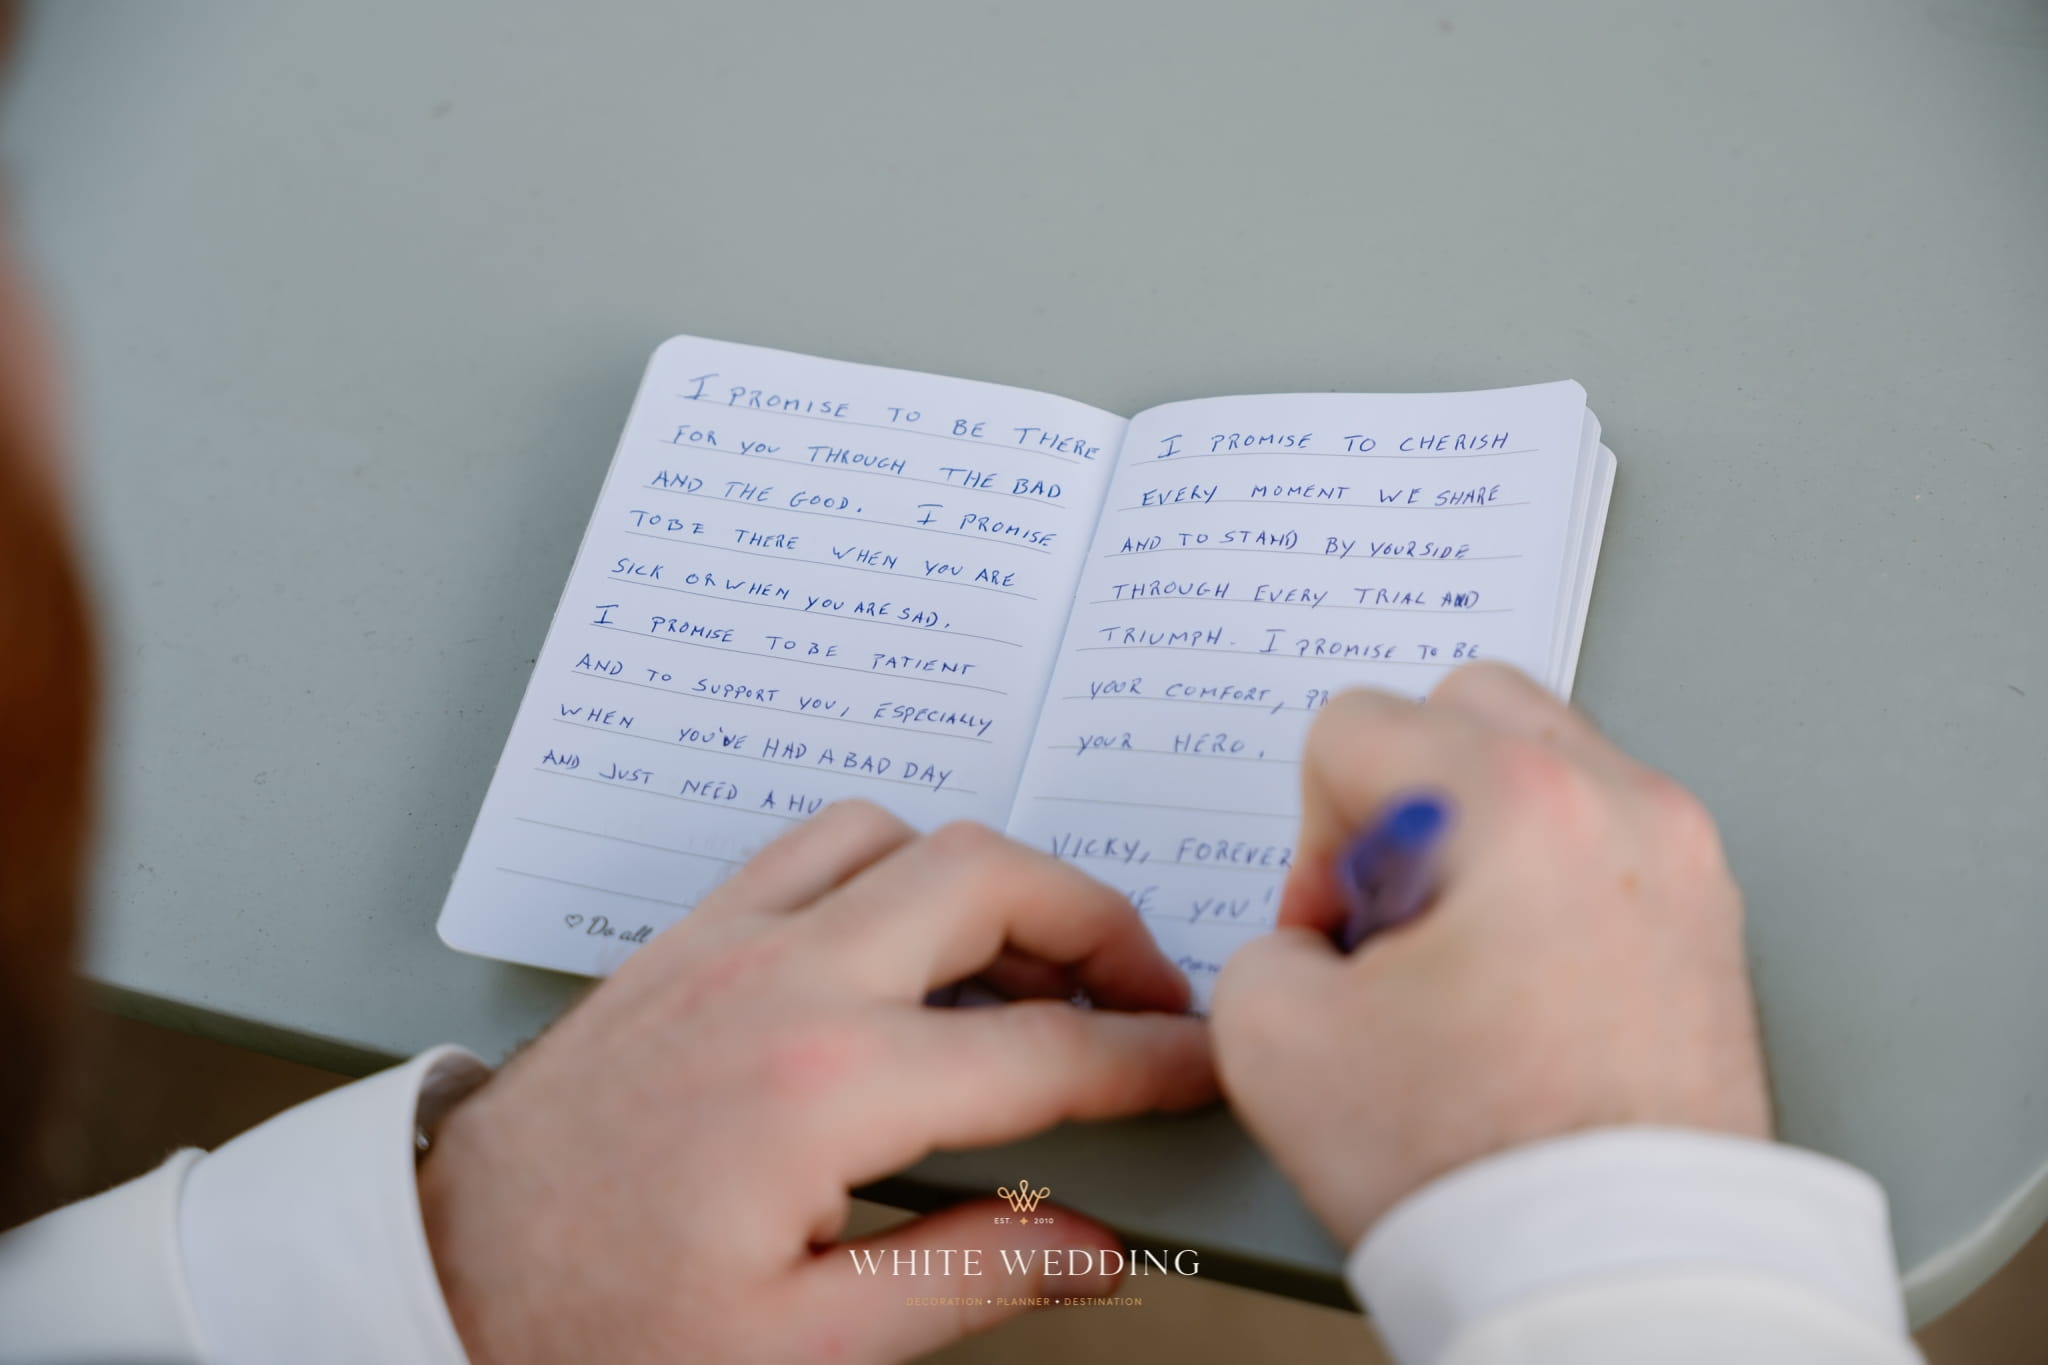 I PROMISE TO BE THERE
FOR YOU THROUGH THE BAD
AND THE GOOD. I PROMISE
TO BE THERE WHEN YOU ARE
SICK OR WHEN YOU ARE SAD.
I PROMISE TO BE PATIENT
AND TO SUPPORT YOU, ESPECIALLY
WHEN YOU'VE HAD A BAD DAY
AND JUST NEED A
♡ Do all
I PROMISE TO CHERISH
EVERY MOMENT WE SHARE
AND TO STAND BY YOUR SIDE
THROUGH EVERY TRIAL AND
TRIUMPH. I PROMISE TO BE
YOUR COMFORT,
YOUR HERO.
VICKY, FOREVER
YOU!
EST. 2010
WHITE WEDDING
DECORATION • PLANNER • DESTINATION